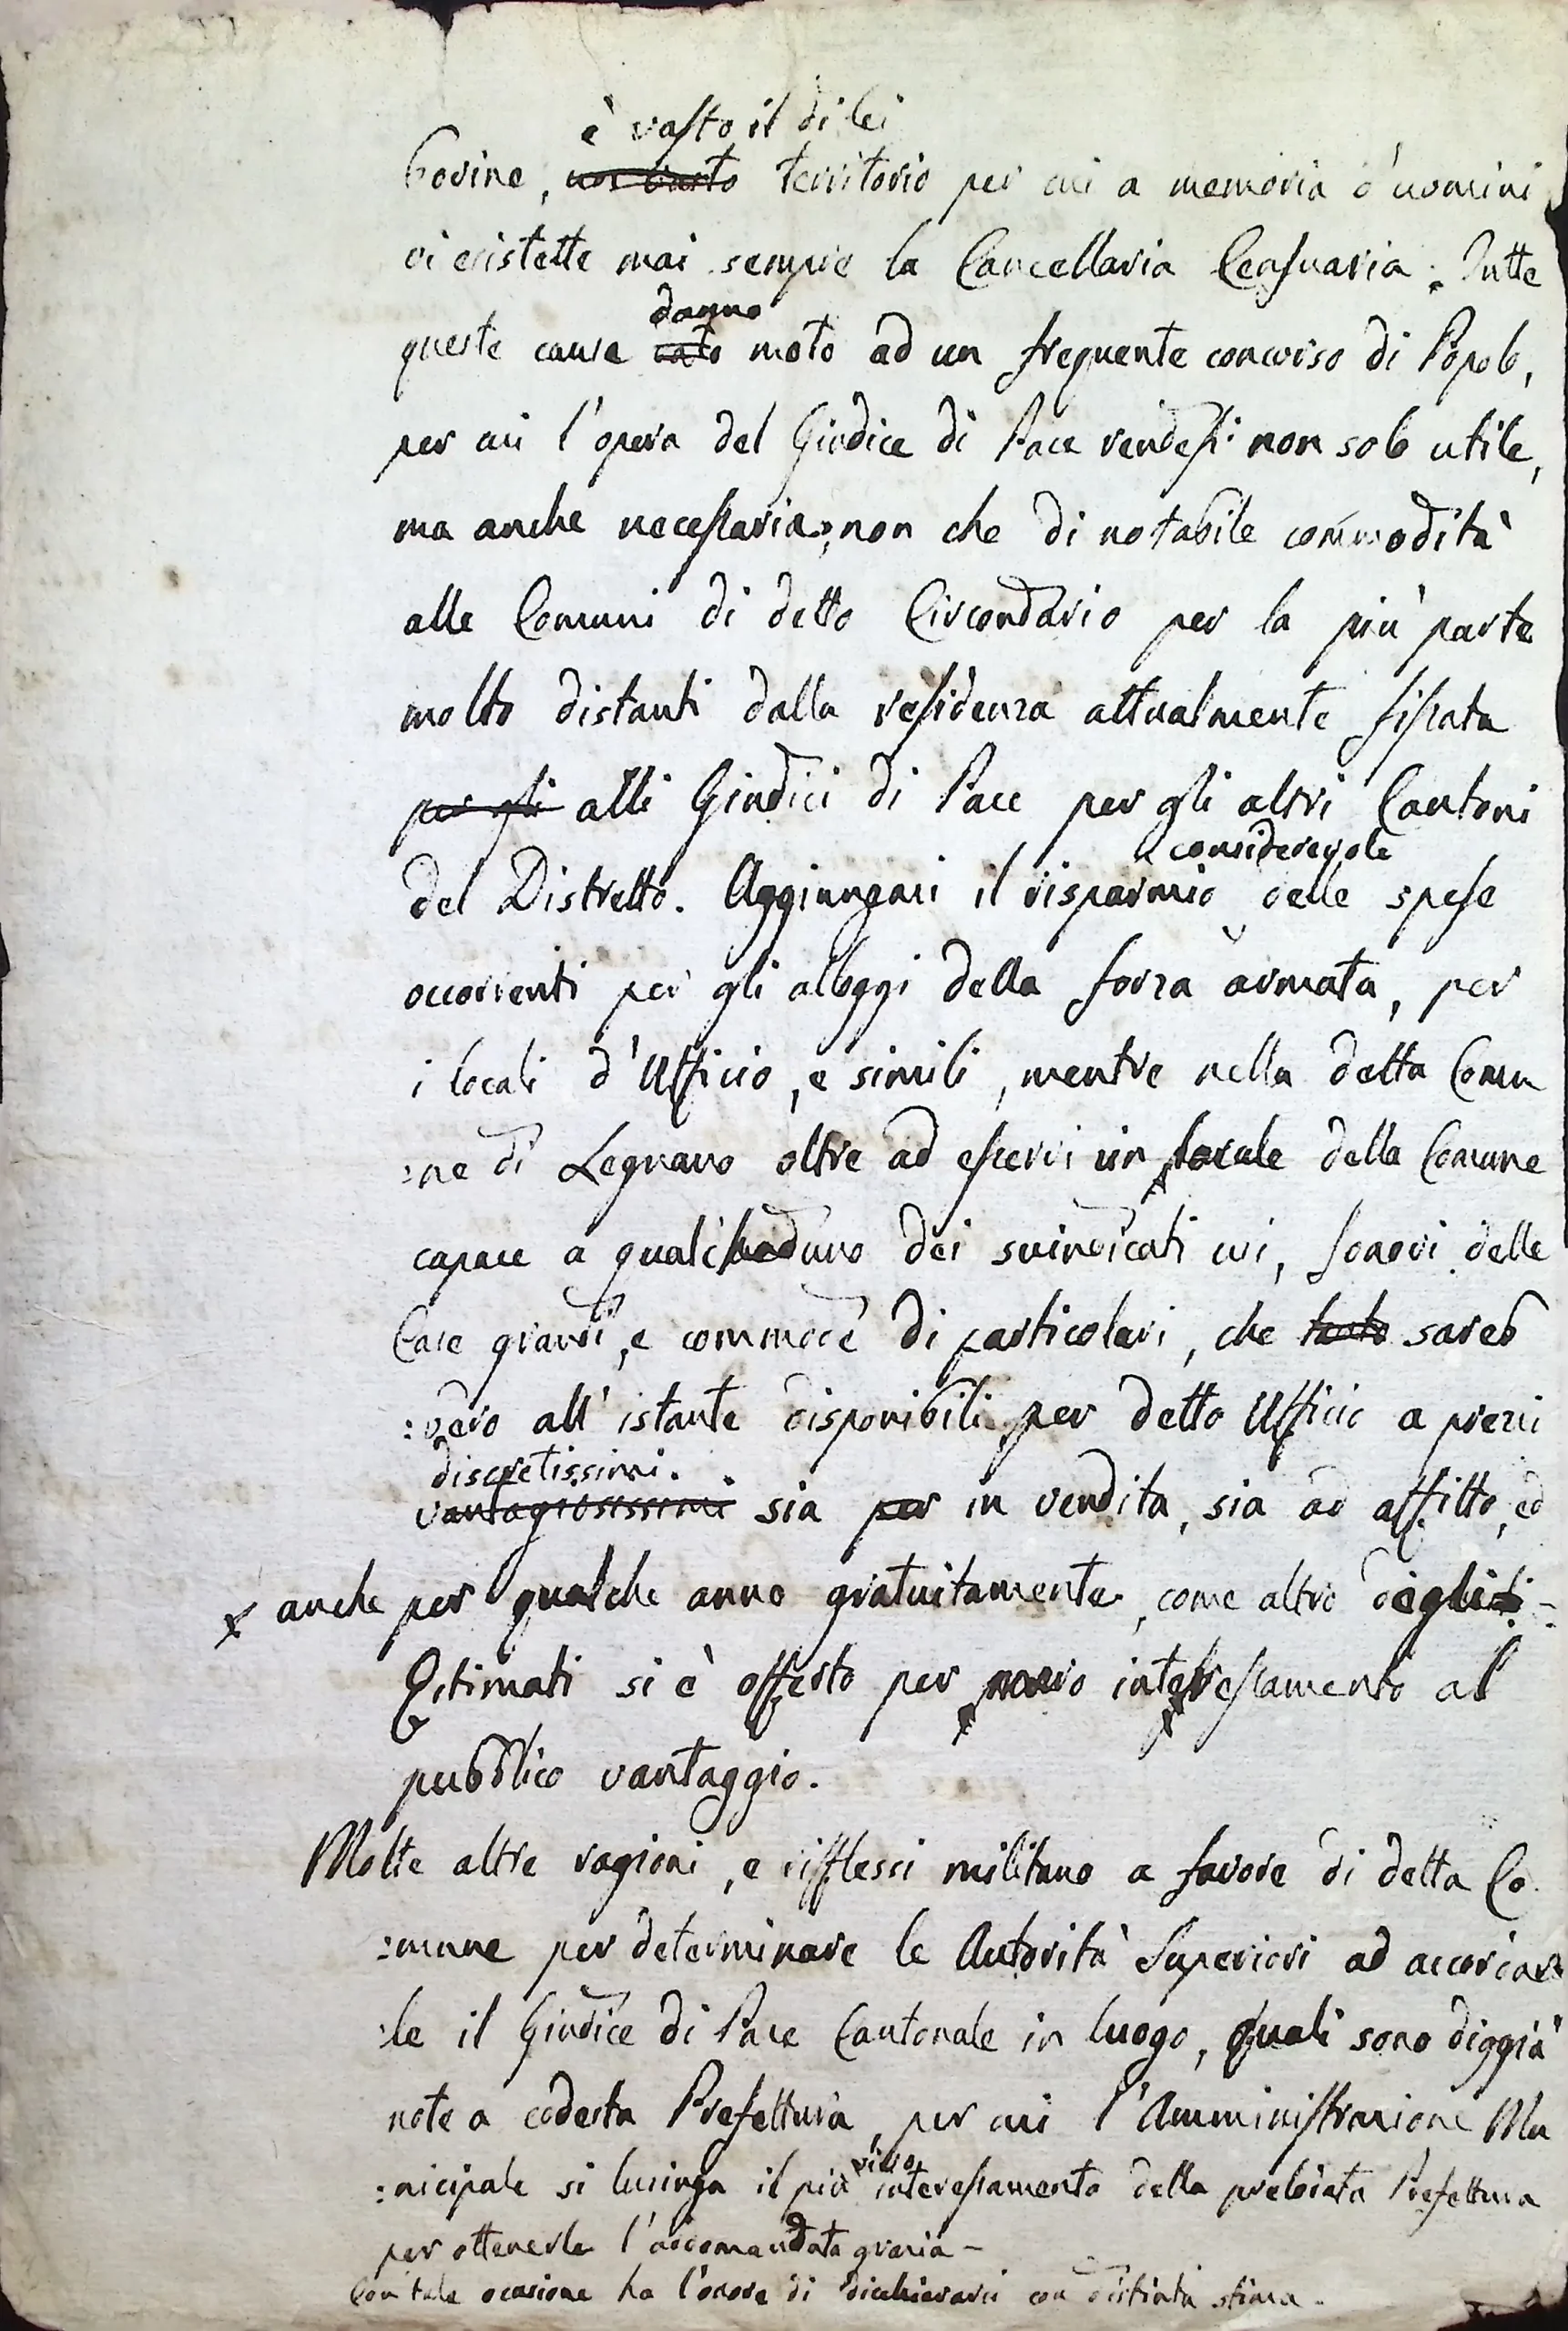 è vasto il di lei
bovine, territorio per cui a memoria d'uomini
vi esistette mai sempre la Cancellaria Censuaria. Tutte
danno
queste cause moto ad un frequente concorso di Popolo,
per cui l'opera del Giudice di Pace rendesi non solo utile,
ma anche necessaria, non che di notabile commodità
alle Comuni di detto Circondario per la più parte
molto distanti dalla residenza attualmente fissata
per gli alli Giudici di Pace per gli altri Cantoni
considerevole
del Distretto. Aggiungasi il risparmio delle spese
occorrenti per gli alloggi della forza armata, per
i locali d'Ufficio, e simili, mentre nella detta Comu
:ne di Legnano oltre ad esservi un locale della Comune
capace a dei suindicati usi, sonovi delle
Case grandi, e commode di particolari, che tanto sareb
:bero all'istante disponibili per detto Ufficio a prezzi
discretissimi.
vantagiosissimi sia per in vendita, sia ad affitto, ed
anche per qualche anno gratuitamente, come altro degli
Estimati si è offerto per interessamento al
pubblico vantaggio.
Molte altre ragioni, e rifflessi militano a favore di detta Co
:mune per determinare le Autorità Superiori ad accordar
:le il Giudice di Pace Cantonale in luogo, quali sono diggià
note a codesta Prefettura, per cui l'Amministrazione Mu
vivo
:nicipale si lusinga il più interessamento della prelodata Prefettura
per ottenerle l'adomandata grazia -
Con tale ocasione ha l'onore di dicchierarsi con distinta stima.